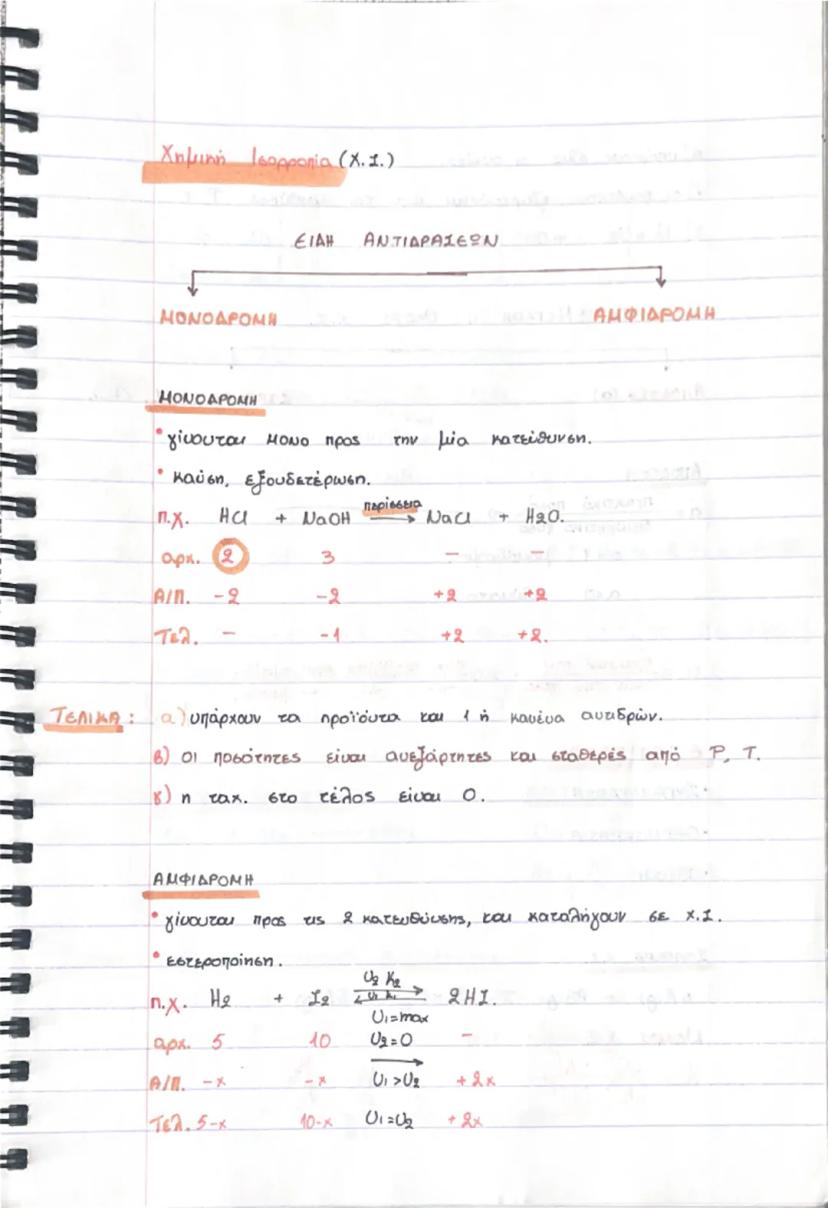 Χημική Ισορροπία (Χ.Ι.)
ΕΙΔΗ ΑΝΤΙΔΡΑΣΕΩΝ
ΜΟΝΟΔΡΟΜΗ ΑΜΦΙΔΡΟΜΗ
ΜΟΝΟΔΡΟΜΗ
• γίνονται μονο προς την μία κατεύθυνση.
• καύση, εξουδετέρωση.
περίσσεια
π.χ. HCl + NaOH → NaCl + H2O.
αρχ. 2 3 - -
Α/Π. -2 -2 +2 +2
Τελ. - -1 +2 +2.
ΤΕΛΙΚΑ: α) υπάρχουν τα προϊόντα και 1 ή κανένα αντιδρών.
β) οι ποσότητες είναι ανεξάρτητες και σταθερές από P, T.
γ) η ταχ. στο τέλος είναι 0.
ΑΜΦΙΔΡΟΜΗ
• γίνονται προς τις 2 κατευθύνσης, και καταλήγουν σε Χ.Ι.
• εστεροποίηση.
U2 K2
π.χ. H2 + I2 ⇄ 2HI.
U1 K1
U1=max
αρχ. 5 10 U2=0 -
Α/Π. -x -x U1>U2 +2x
Τελ. 5-x 10-x U1=U2 +2x